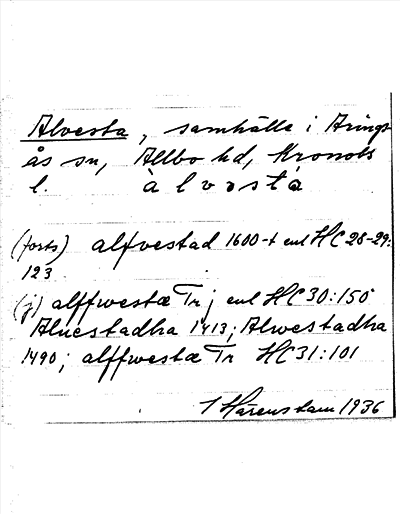 Alvesta, samhälle i Arings-
ås sn, Allbo hd, Kronobs
l. àlvəstá
(forts) alfvestad 1600-t enl HC 28-29:
123
(j) alffwestæ Tr j enl HC 30:150
Aluestadha 1413; Alwestadha
1490; alffwestæ Tr HC 31:101
Härenstam 1936